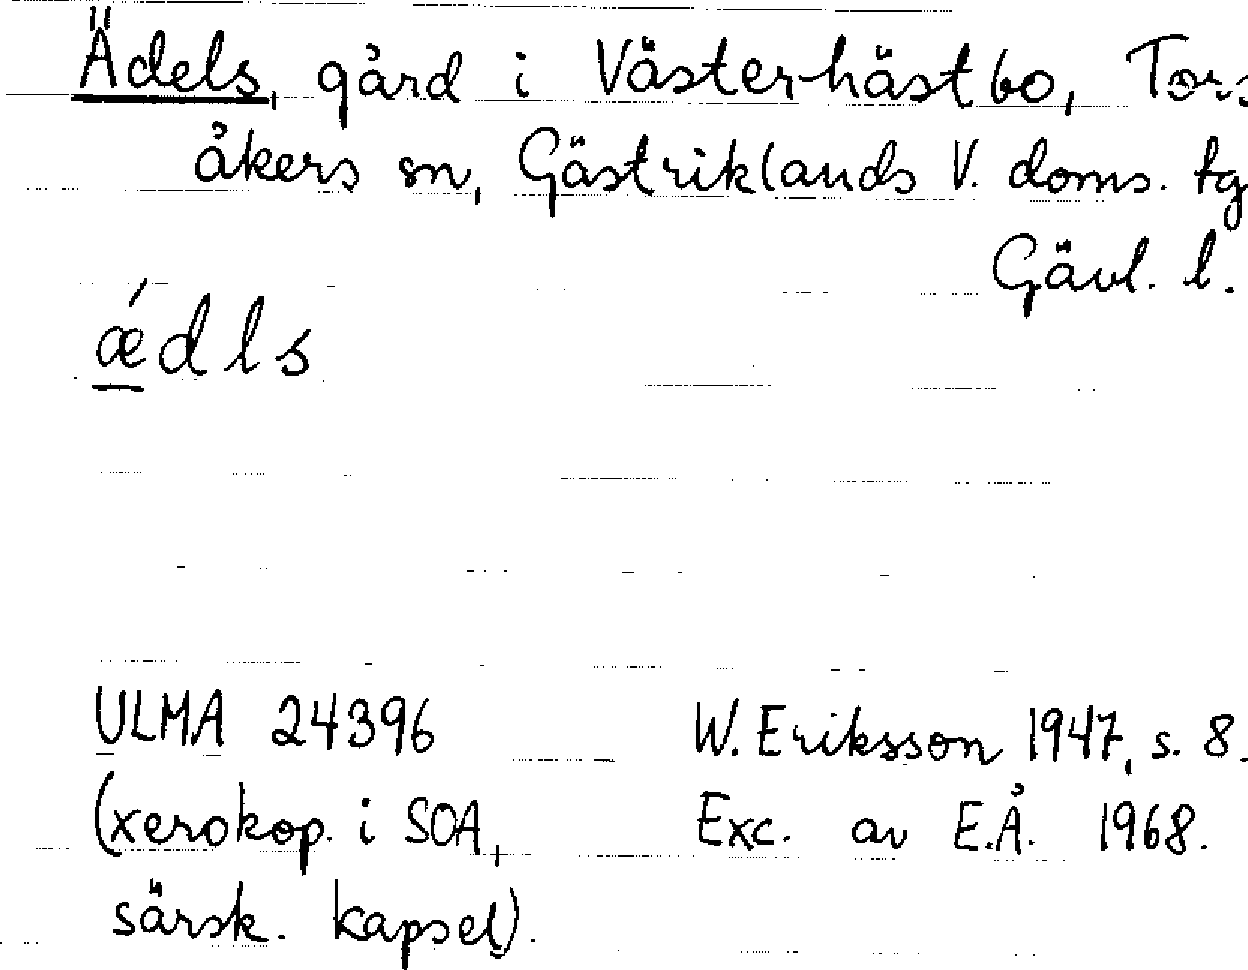 Ädels, gård i Västerhästbo, Tors-
åkers sn, Gästriklands V. doms. tg
Gävl. l.
ǽdls
ULMA 24396 W. Eriksson 1947, s. 8.
(xerokop. i SOA, Exc. av E.Å. 1968.
särsk. kapsel).